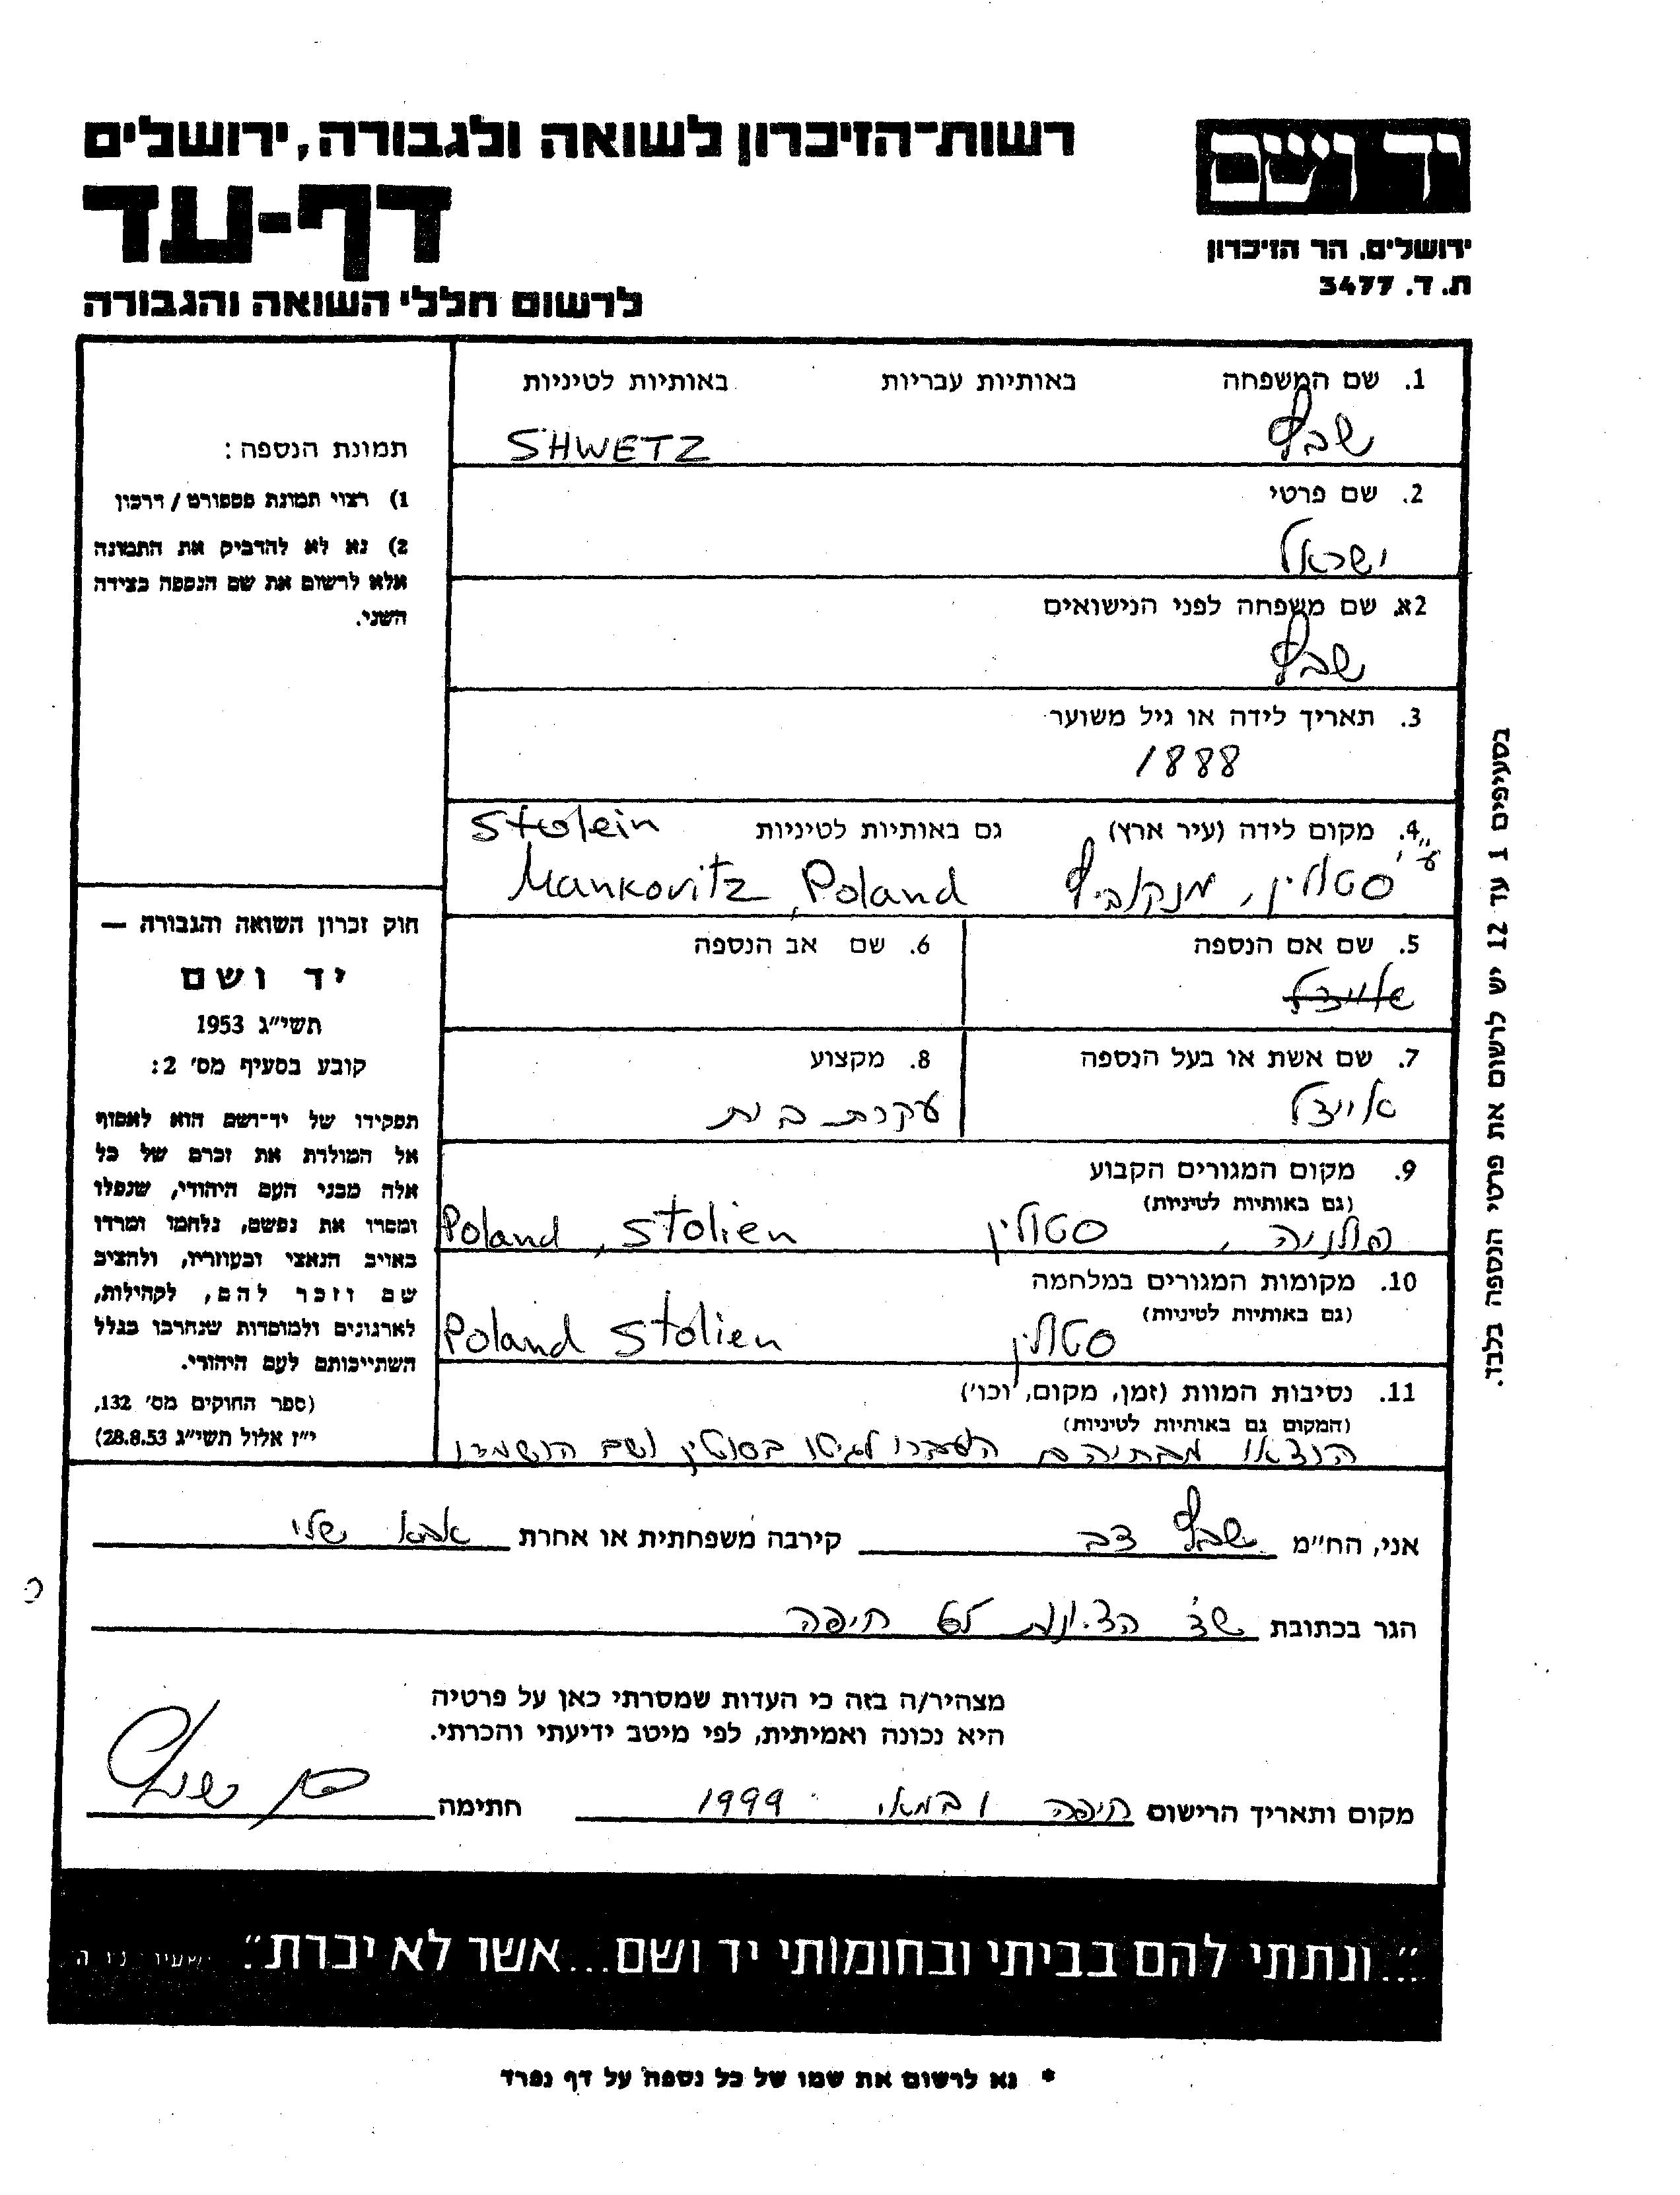 רשות־הזיכרון לשואה ולגבורה, ירושלים
דף-עד
לרשום חללי השואה והגבורה
יד ושם
ירושלים, הר הזיכרון
ת. ד. 3477
1. שם המשפחה באותיות עבריות באותיות לטיניות
שבץ SHWETZ
2. שם פרטי
ישראל
2א. שם משפחה לפני הנישואים
שבץ
3. תאריך לידה או גיל משוער
1888
4. מקום לידה (עיר ארץ) גם באותיות לטיניות Stolein
סטולין, מנקוביץ Mankovitz, Poland
5. שם אם הנספה 6. שם אב הנספה
7. שם אשת או בעל הנספה 8. מקצוע
אייזל עקרת בית
9. מקום המגורים הקבוע
(גם באותיות לטיניות)
פולניה, סטולין Poland, Stolien
10. מקומות המגורים במלחמה
(גם באותיות לטיניות)
סטולין Poland Stolien
11. נסיבות המוות (זמן, מקום, וכו')
(המקום גם באותיות לטיניות)
הוצאו מבתיהם הועברו לגיטו בסוטין ושם הושמדו
תמונת הנספה:
1) רצוי תמונת פספורט / דרכון
2) נא לא להדביק את התמונה
אלא לרשום את שם הנספה בצידה
השני.
חוק זכרון השואה והגבורה —
יד ושם
תשי״ג 1953
קובע בסעיף מס׳ 2:
תפקידו של יד־ושם הוא לאסוף
אל המולדת את זכרם של כל
אלה מבני העם היהודי, שנפלו
ומסרו את נפשם, נלחמו ומרדו
באויב הנאצי ובעוזריו, ולהציב
שם וזכר להם, לקהילות,
לארגונים ולמוסדות שנחרבו בגלל
השתייכותם לעם היהודי.
(ספר החוקים מס׳ 132,
י״ז אלול תשי״ג 28.8.53)
בסעיפים 1 עד 12 יש לרשום את פרטי הנספה בלבד.
אני, הח״מ שבץ דב קירבה משפחתית או אחרת אבא שלי
הגר בכתובת שד' הציונות חיפה
מצהיר/ה בזה כי העדות שמסרתי כאן על פרטיה
היא נכונה ואמיתית, לפי מיטב ידיעתי והכרתי.
מקום ותאריך הרישום חיפה 1 במאי 1999 חתימה
״...ונתתי להם בביתי ובחומותי יד ושם...אשר לא יכרת״. ישעיהו נו ה
* נא לרשום את שמו של כל נספה על דף נפרד